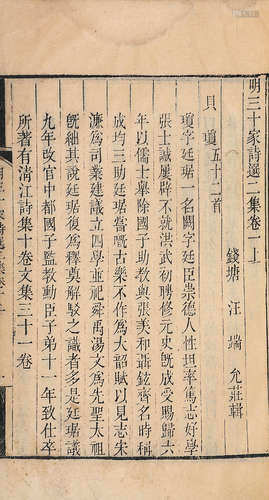 明三十家詩選二集卷一上
錢塘 汪端 允莊輯
貝瓊 五十二首
瓊字廷琚一名闕字廷臣崇德人性坦率篤志好學
張士誠屢辟不就洪武初聘修元史旣成受賜歸六
年以儒士舉除國子助敎與張美和聶鉉齊名時稱
成均三助廷琚嘗嘅古樂不作爲大韶賦以見志宋
濂爲司業建議立四學並祀舜禹湯文爲先聖太祖
旣絀其說廷琚復爲釋奠解駁之識者多是廷琚議
九年改官中都國子監敎勳臣子弟十一年致仕卒
所著有淸江詩集十卷文集三十一卷